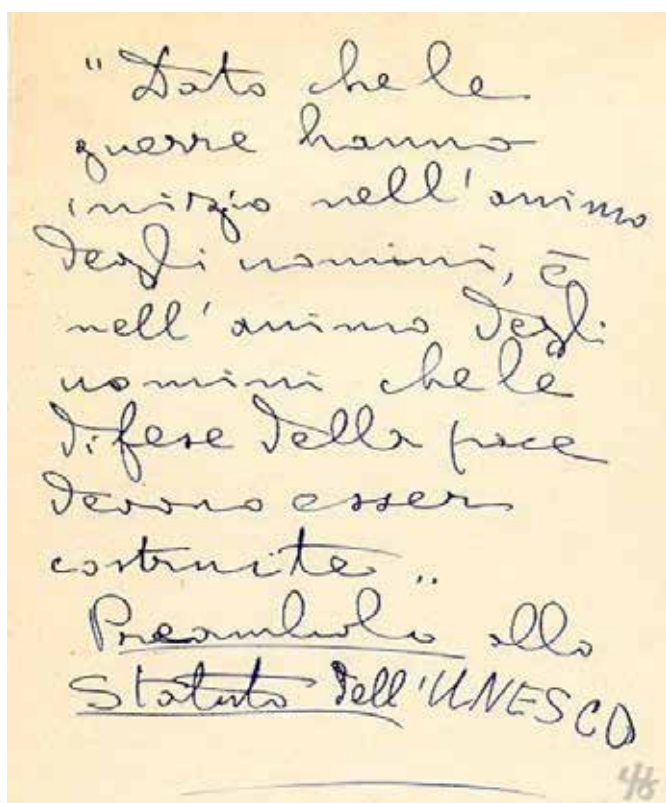 "Dato che le
guerre hanno
inizio nell'animo
degli uomini, è
nell'animo degli
uomini che le
difese della pace
devono esser
costruite"
Preambolo allo
Statuto dell'UNESCO